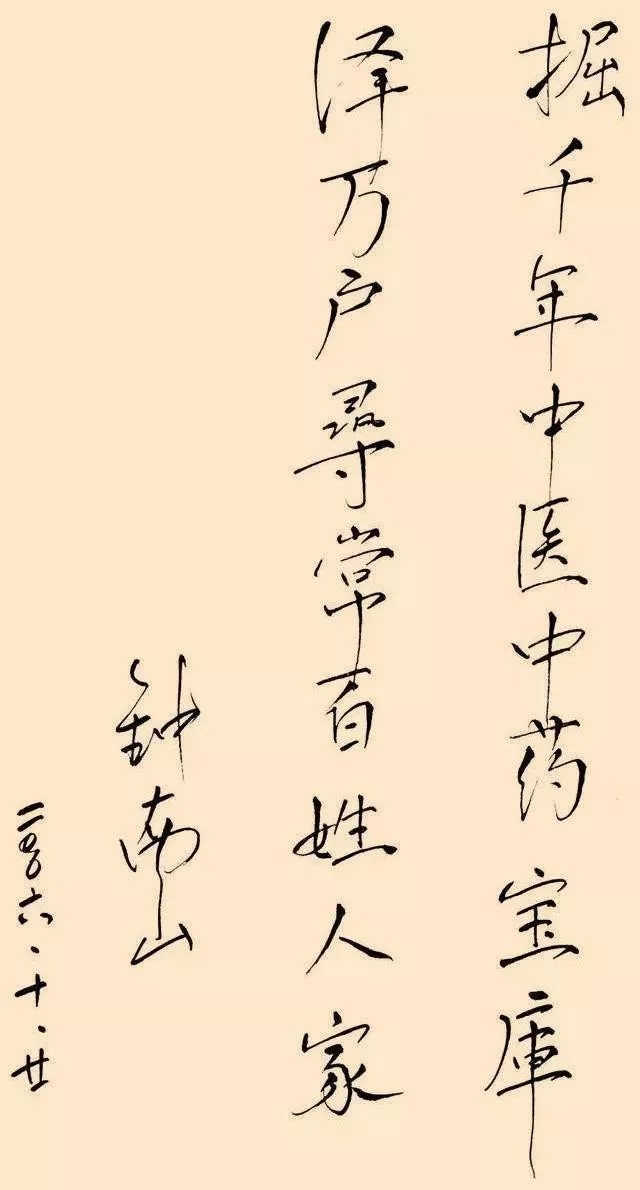 掘千年中医中药宝庫
泽万户尋常百姓人家
钟南山
二〇〇六、十、廿